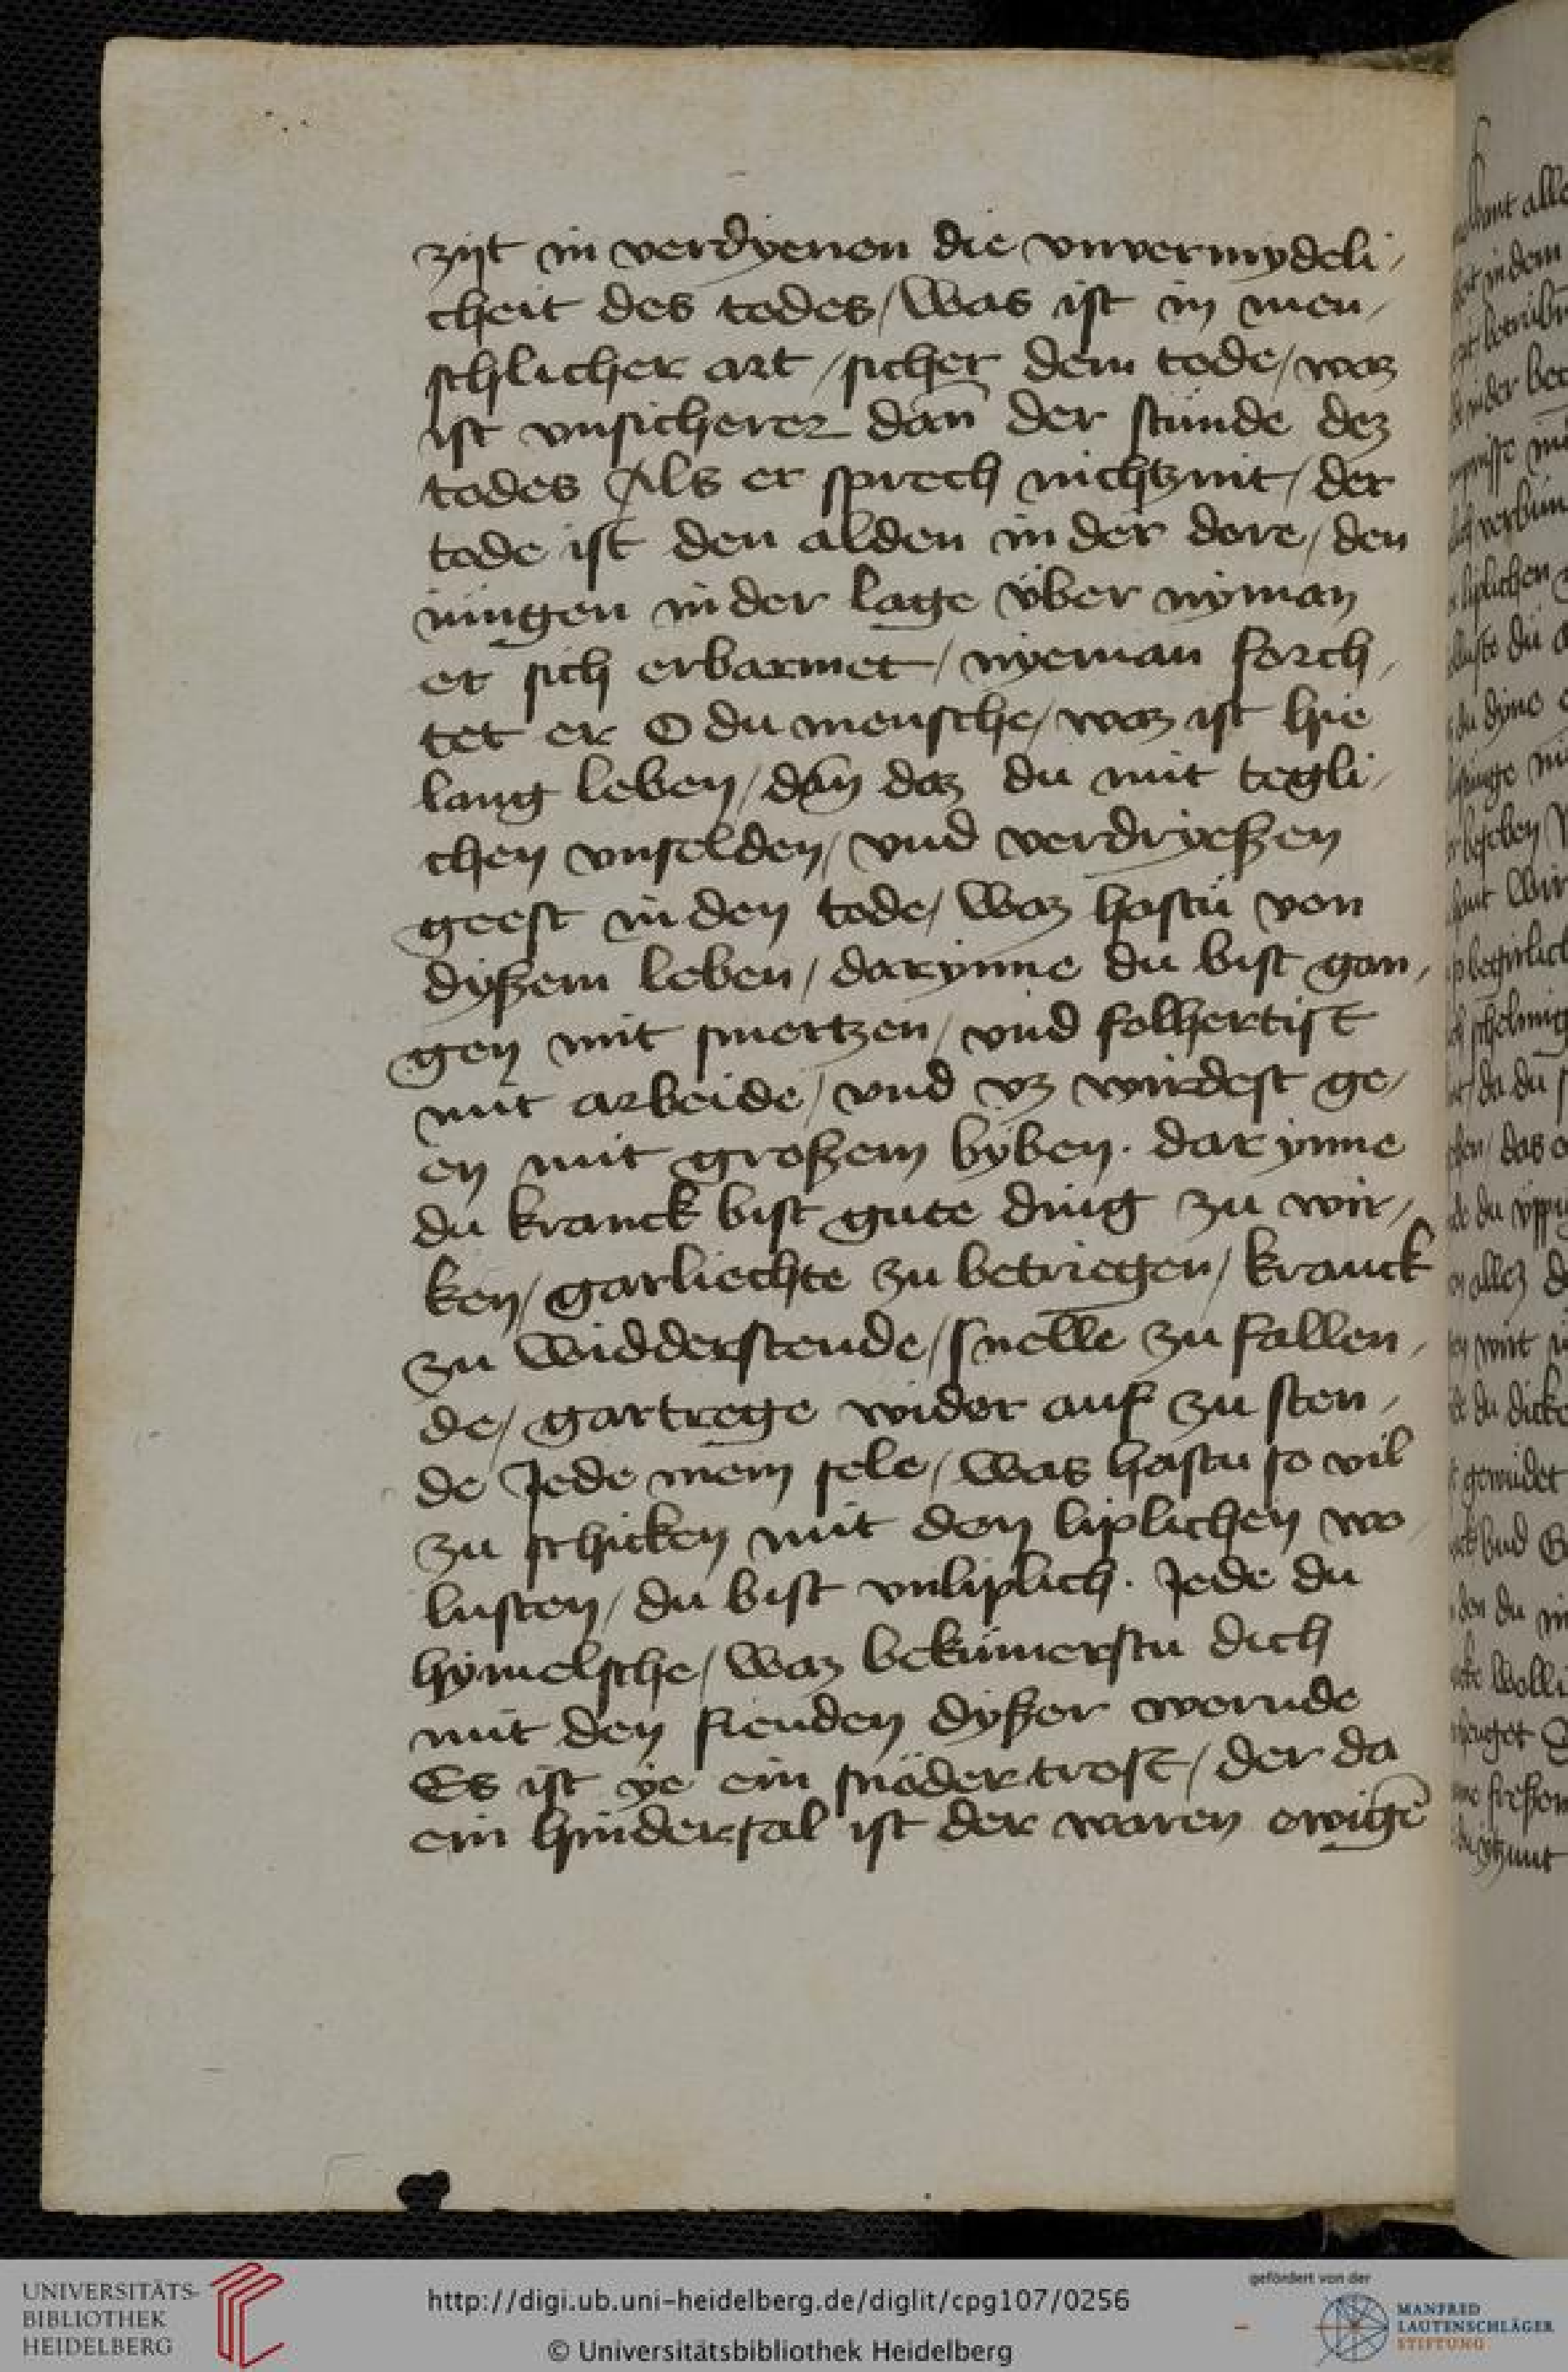 zijt in verdyenen die vnvermydeli/
cheit des todes/ Was ist in men/
schlicher art/ sicher dem tode/ waz
ist vnsicherer dan̄ der stunde dez
todes Als er sprech nichtznit/ der
tode ist den alden in der dore/ den
iungen in der lage über nyman
er sich erbarmet/ nyeman forch/
tet er O du mensche/ waz ist hie
lang leben/ dan̄ daz du mit tegli/
chen vnselden/ vnd verdryeßen
geest in den tode/ Waz hastu von
dyßem leben/ darynne du bist gan/
gen mit smertzen/ vnd folhertist
mit arbeide/ vnd vz wirdest ge/
en mit großem byben. dar ynne
du kranck bist gute ding zu wir/
ken/ garliechte zu betriegen/ kranck
zu widderstende/ snelle zu fallen/
de/ gartrege wider auf zu sten/
de Jede mein sele/ Was hastu so vil
zu schicken mit den liplichen wo/
lusten/ du bist vnliplich. Jede du
hymelsche/ Waz bekümerstu dich
mit den fienden dyßer wernde
Es ist ye ein snöder trost/ der da
ein hindersal ist der waren ewigē
UNIVERSITÄTS-
BIBLIOTHEK
HEIDELBERG
http://digi.ub.uni-heidelberg.de/diglit/cpg107/0256
© Universitätsbibliothek Heidelberg
gefördert von der
MANFRED
LAUTENSCHLÄGER
STIFTUNG